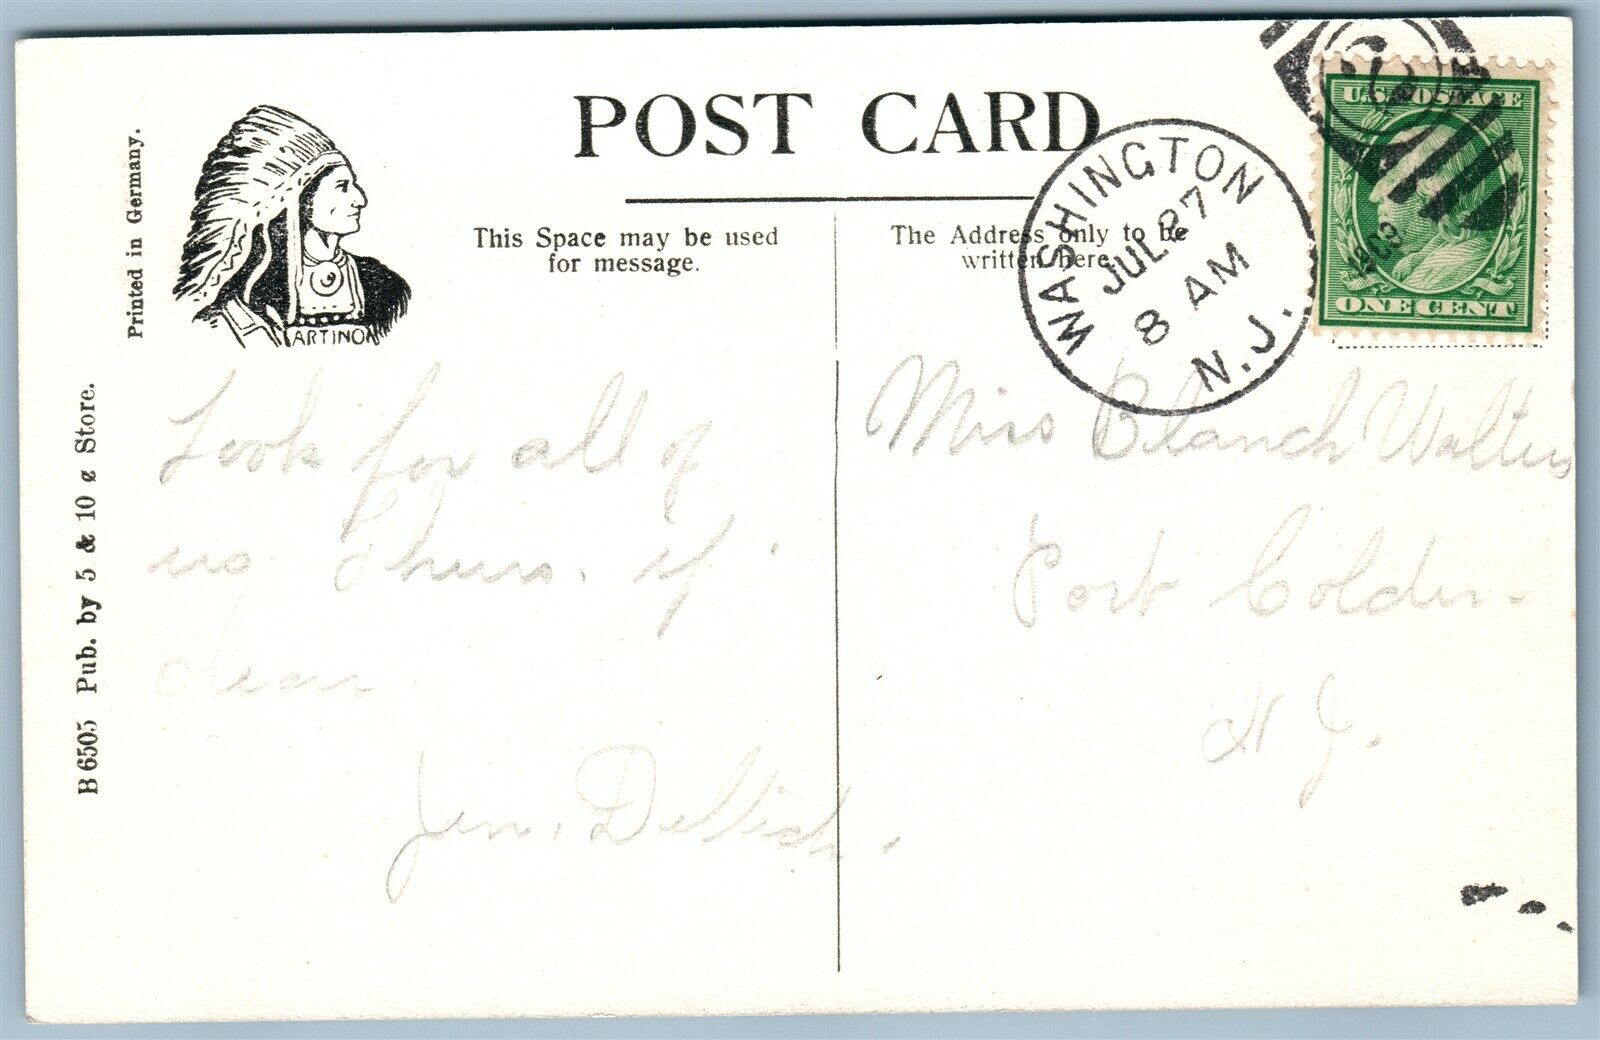 POST CARD
Printed in Germany.
ARTINO
This Space may be used
for message.
The Address only to be
written here.
WASHINGTON
JUL 27
8 AM
N.J.
U.S. POSTAGE
ONE CENT
B 6505 Pub. by 5 & 10 ¢ Store.
Look for all of
us Thurs. if
clear
Jen.
Miss Blanch Walters
Port Colden
N J.